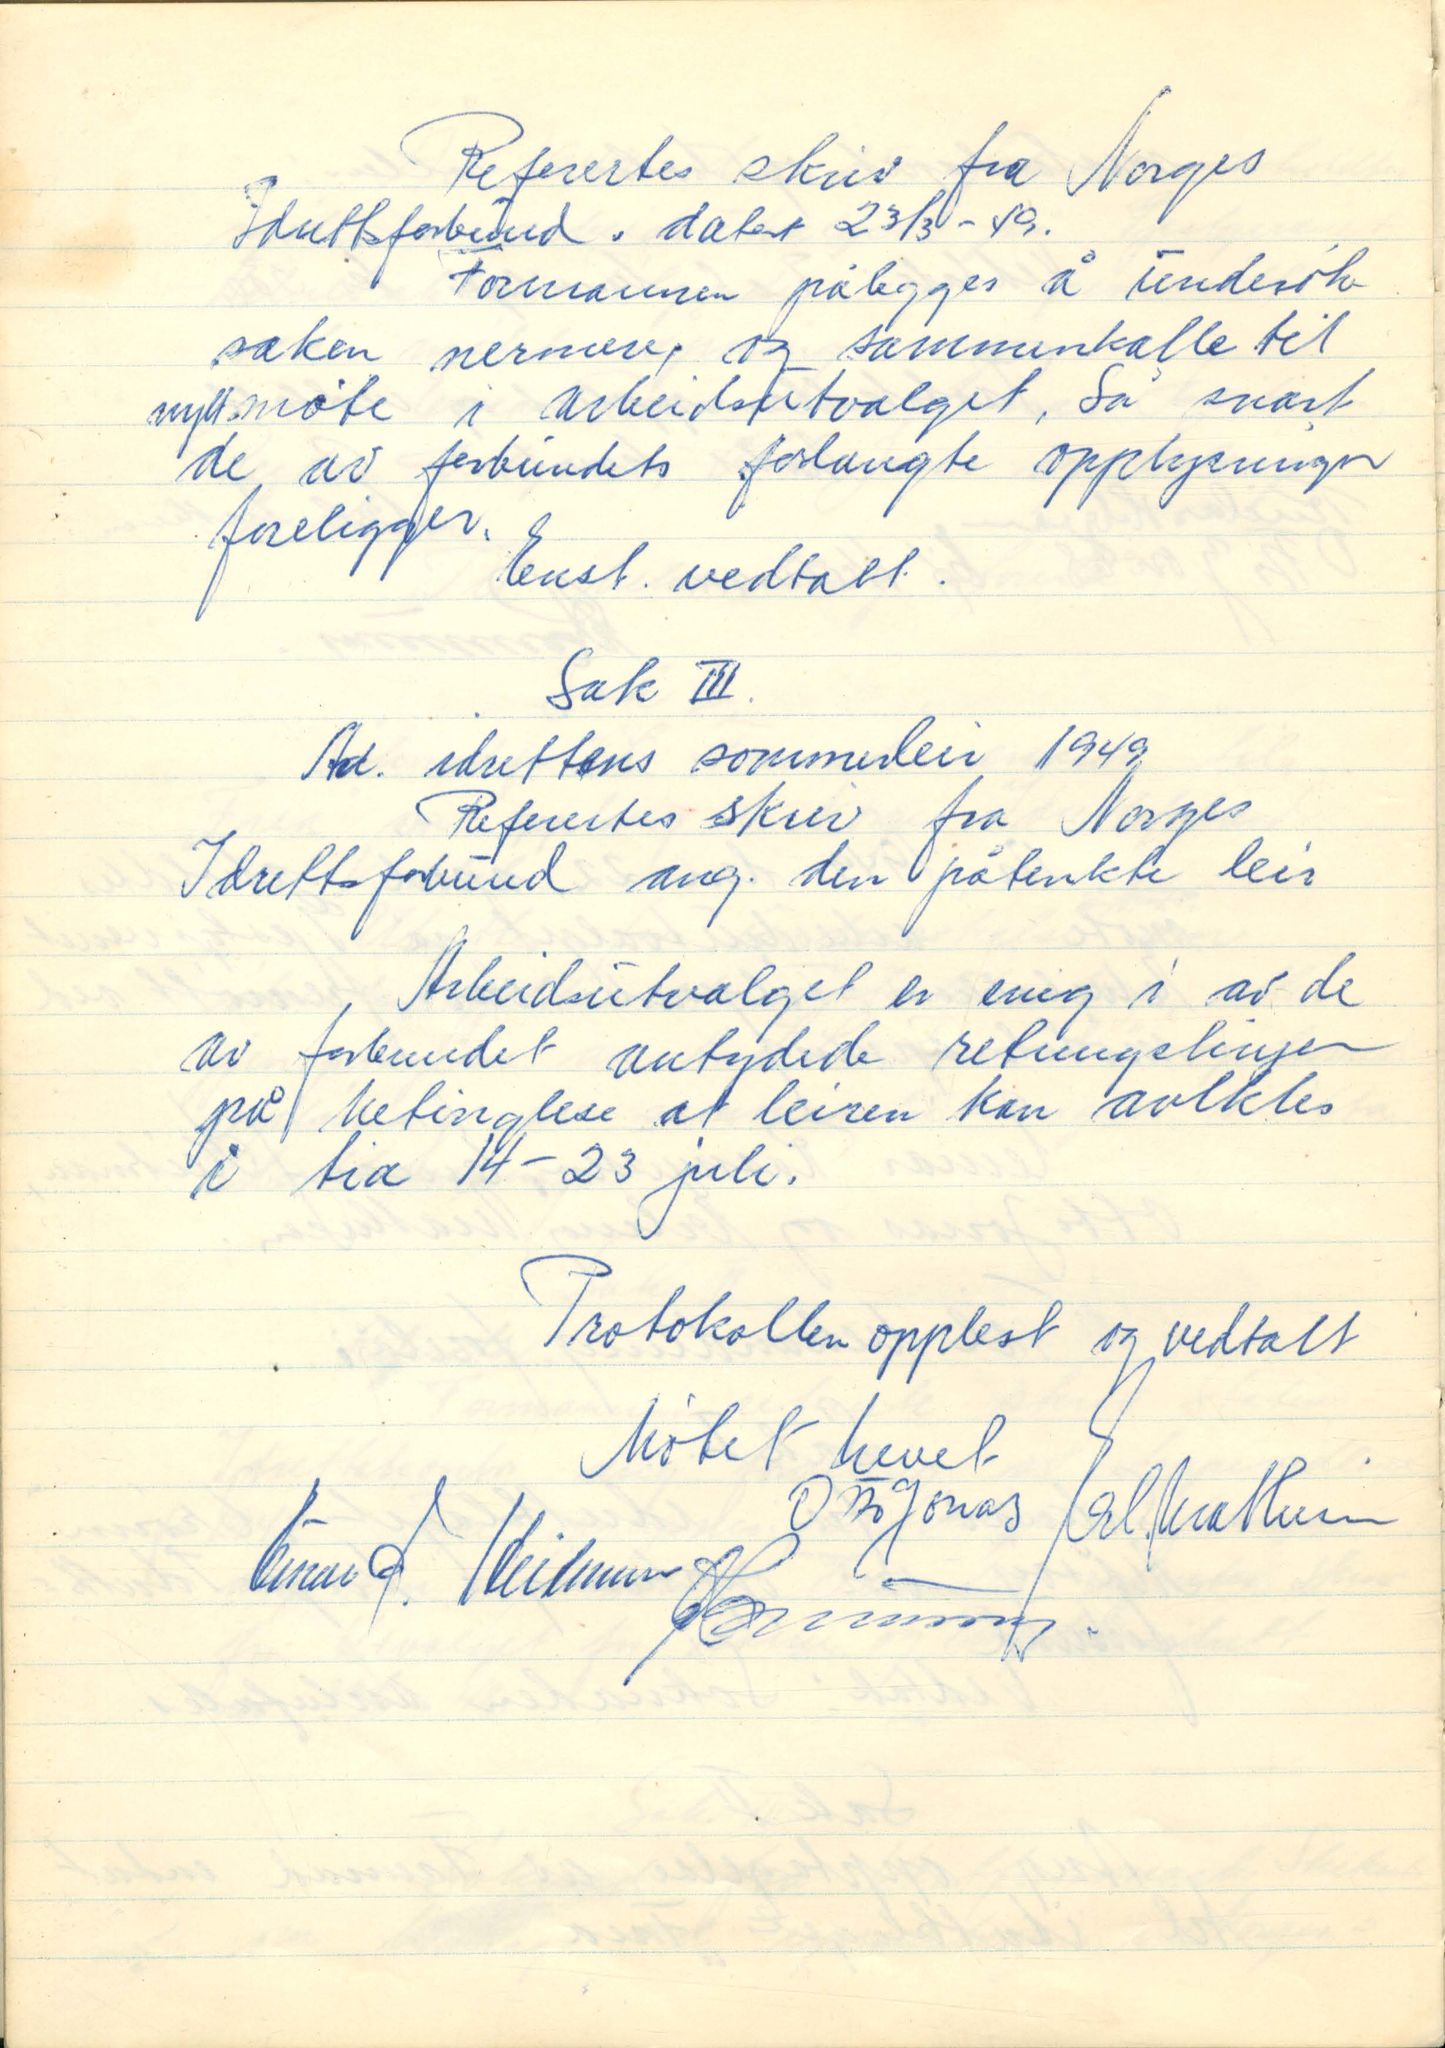 Referertes skriv fra Norges
Idrettsforbund. datert 23/3-49.
Formannen pålegges å undersøke
saken nermere, og sammenkalle til
nytt møte i arbeidsutvalget, så snart
de av forbundets forlangte opplysninger
foreligger.
Enst. vedtatt.
Sak III.
Ad. idrettens sommerleir 1949
Referertes skriv fra Norges
Idrettsforbund ang. den påtenkte leir
Arbeidsutvalget er enig i av de
av forbundet antydede retningslinjer
på betinglese at leiren kan avlktes
i tia 14-23 juli.
Protokollen opplest og vedtatt
Møtet hevet
Otto Jonas Erl. Mathisen
Einar